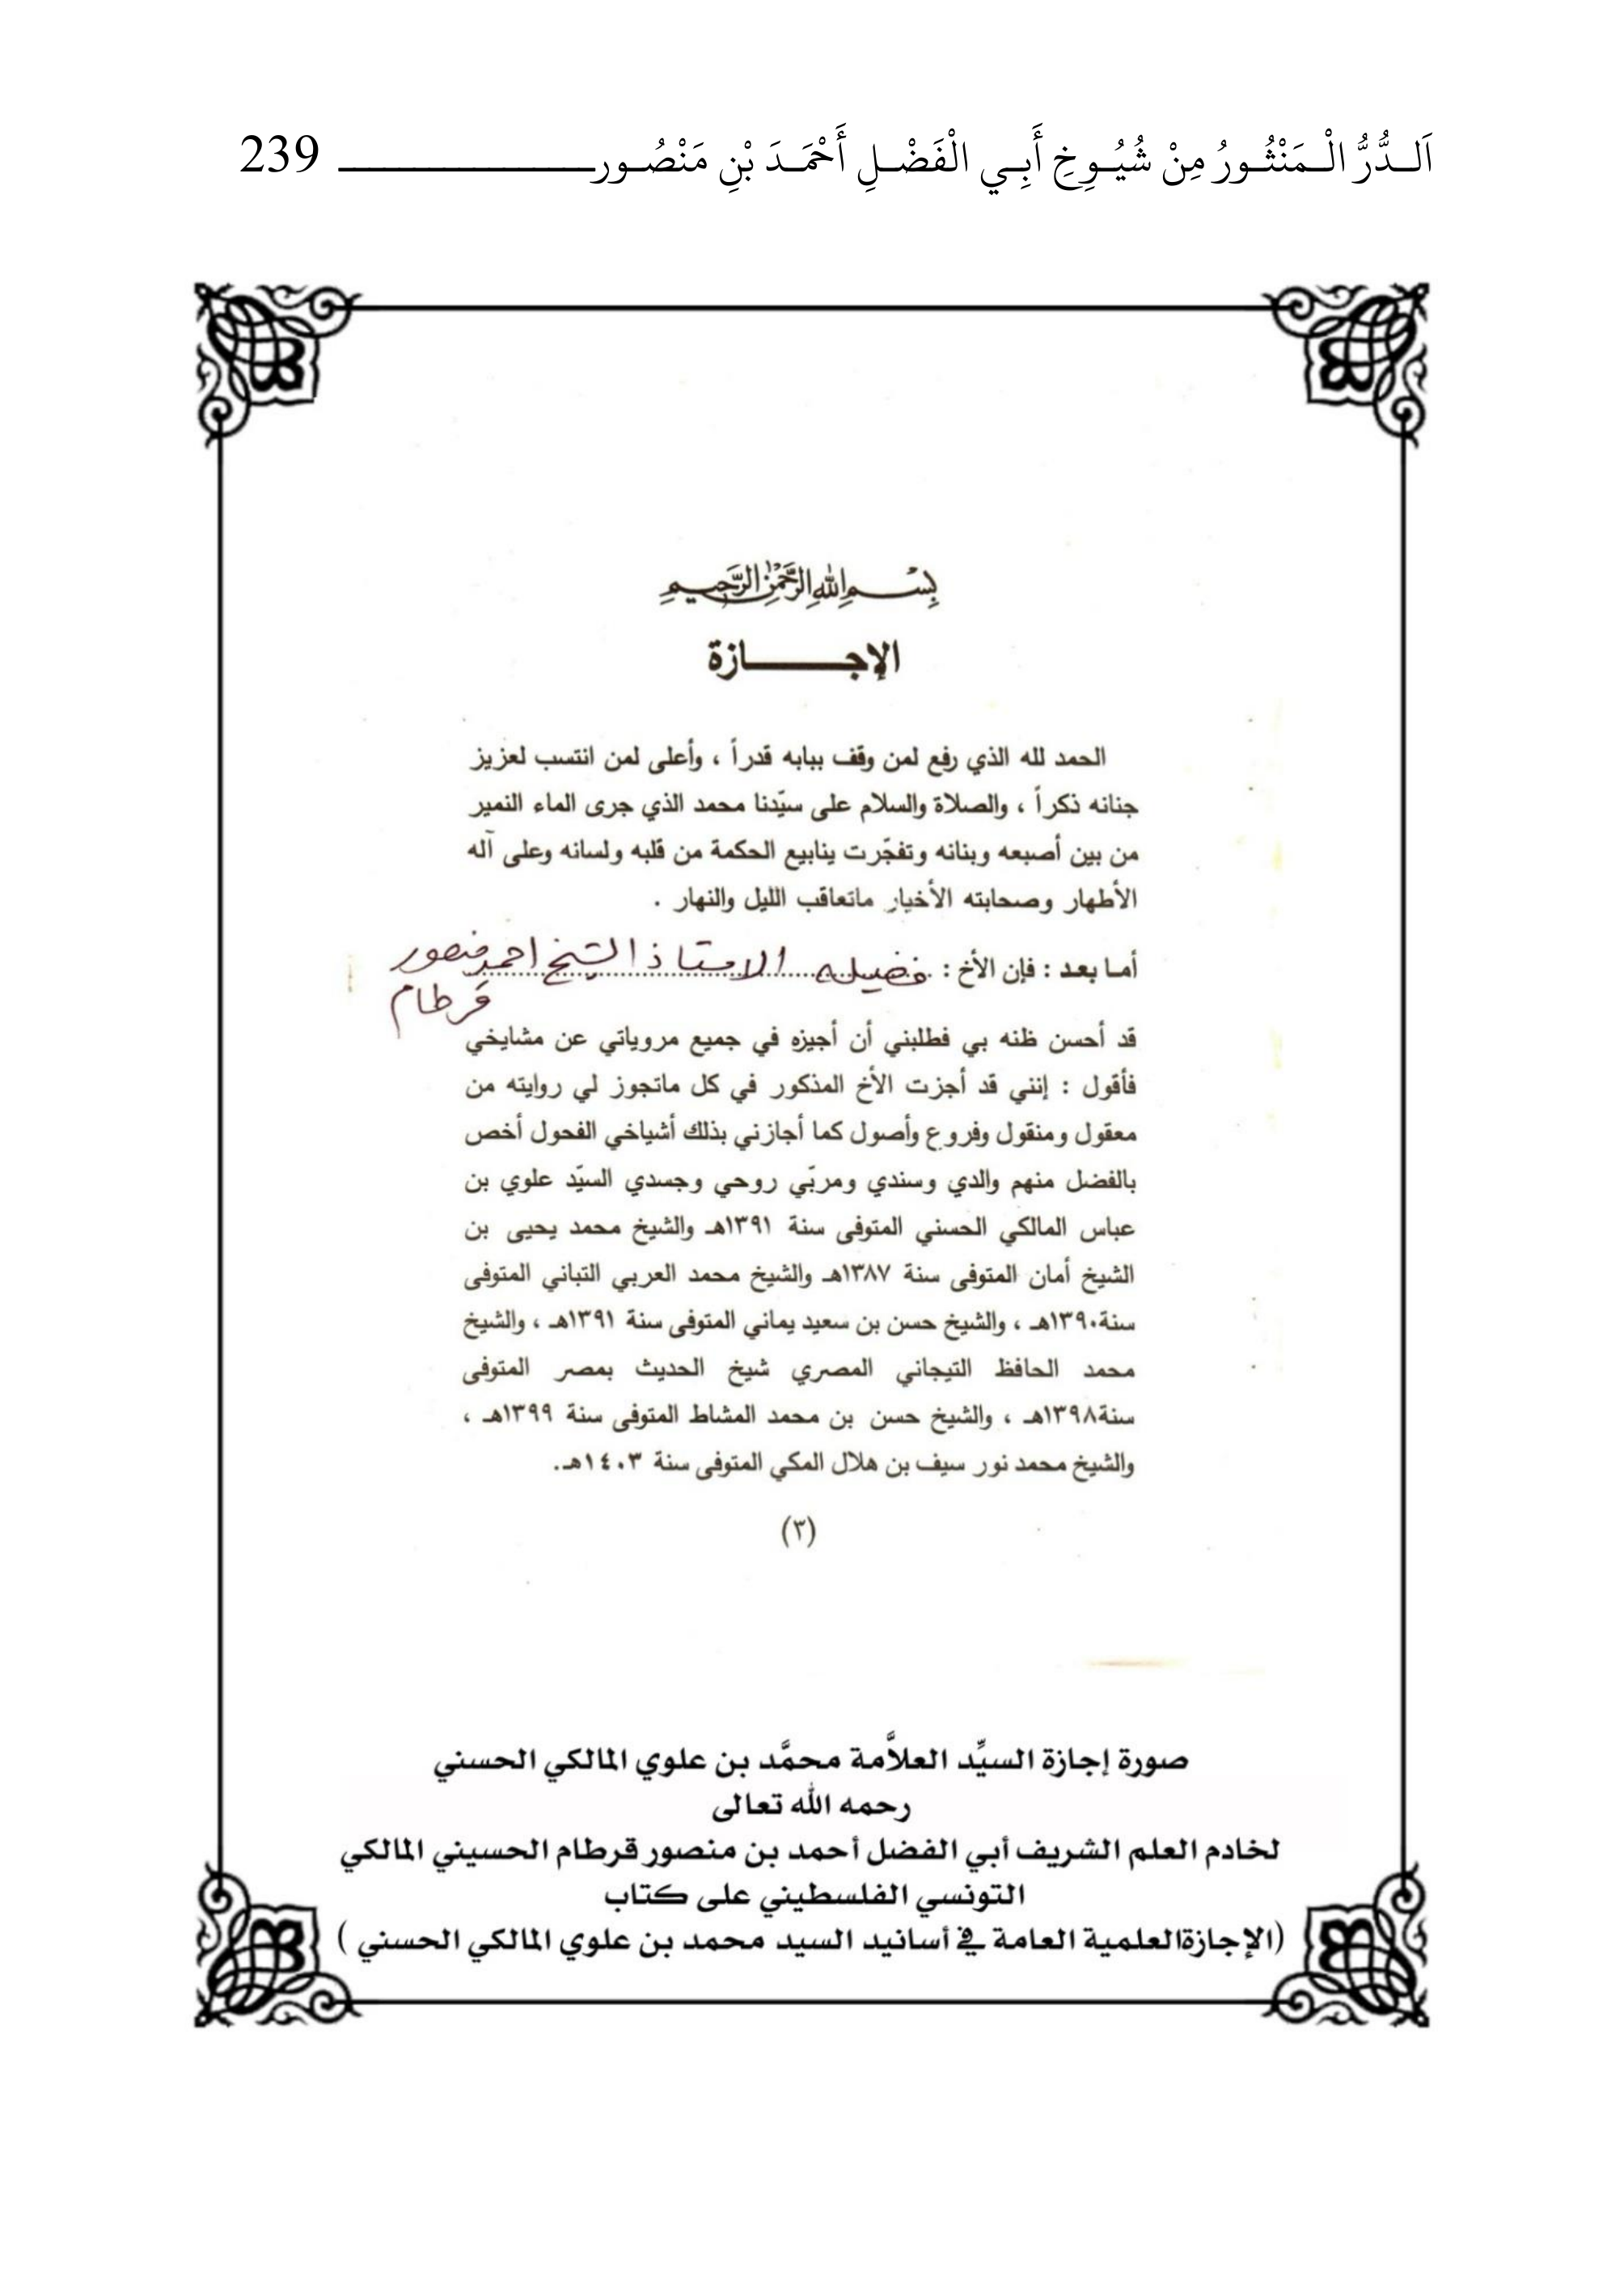 اَلــدُّرُّ الْـمَنْثُـورُ مِنْ شُيُـوخِ أَبِـي الْفَضْـلِ أَحْمَـدَ بْنِ مَنْصُـور 239
بِسْمِ اللهِ الرَّحْمٰنِ الرَّحِيمِ
الإجـــــازة
الحمد لله الذي رفع لمن وقف ببابه قدراً ، وأعلى لمن انتسب لعزيز
جنانه ذكراً ، والصلاة والسلام على سيّدنا محمد الذي جرى الماء النمير
من بين أصبعه وبنانه وتفجّرت ينابيع الحكمة من قلبه ولسانه وعلى آله
الأطهار وصحابته الأخيار ماتعاقب الليل والنهار .
أما بعد : فإن الأخ : فضيله الاستاذ الشيخ احمد منصور
قرطام
قد أحسن ظنه بي فطلبني أن أجيزه في جميع مروياتي عن مشايخي
فأقول : إنني قد أجزت الأخ المذكور في كل ماتجوز لي روايته من
معقول ومنقول وفروع وأصول كما أجازني بذلك أشياخي الفحول أخص
بالفضل منهم والدي وسندي ومربّي روحي وجسدي السيّد علوي بن
عباس المالكي الحسني المتوفى سنة ١٣٩١هـ والشيخ محمد يحيى بن
الشيخ أمان المتوفى سنة ١٣٨٧هـ والشيخ محمد العربي التباني المتوفى
سنة١٣٩٠هـ ، والشيخ حسن بن سعيد يماني المتوفى سنة ١٣٩١هـ ، والشيخ
محمد الحافظ التيجاني المصري شيخ الحديث بمصر المتوفى
سنة١٣٩٨هـ ، والشيخ حسن بن محمد المشاط المتوفى سنة ١٣٩٩هـ ،
والشيخ محمد نور سيف بن هلال المكي المتوفى سنة ١٤٠٣هـ.
(٣)
صورة إجازة السيِّد العلاَّمة محمَّد بن علوي المالكي الحسني
رحمه الله تعالى
لخادم العلم الشريف أبي الفضل أحمد بن منصور قرطام الحسيني المالكي
التونسي الفلسطيني على كتاب
(الإجازةالعلمية العامة في أسانيد السيد محمد بن علوي المالكي الحسني )